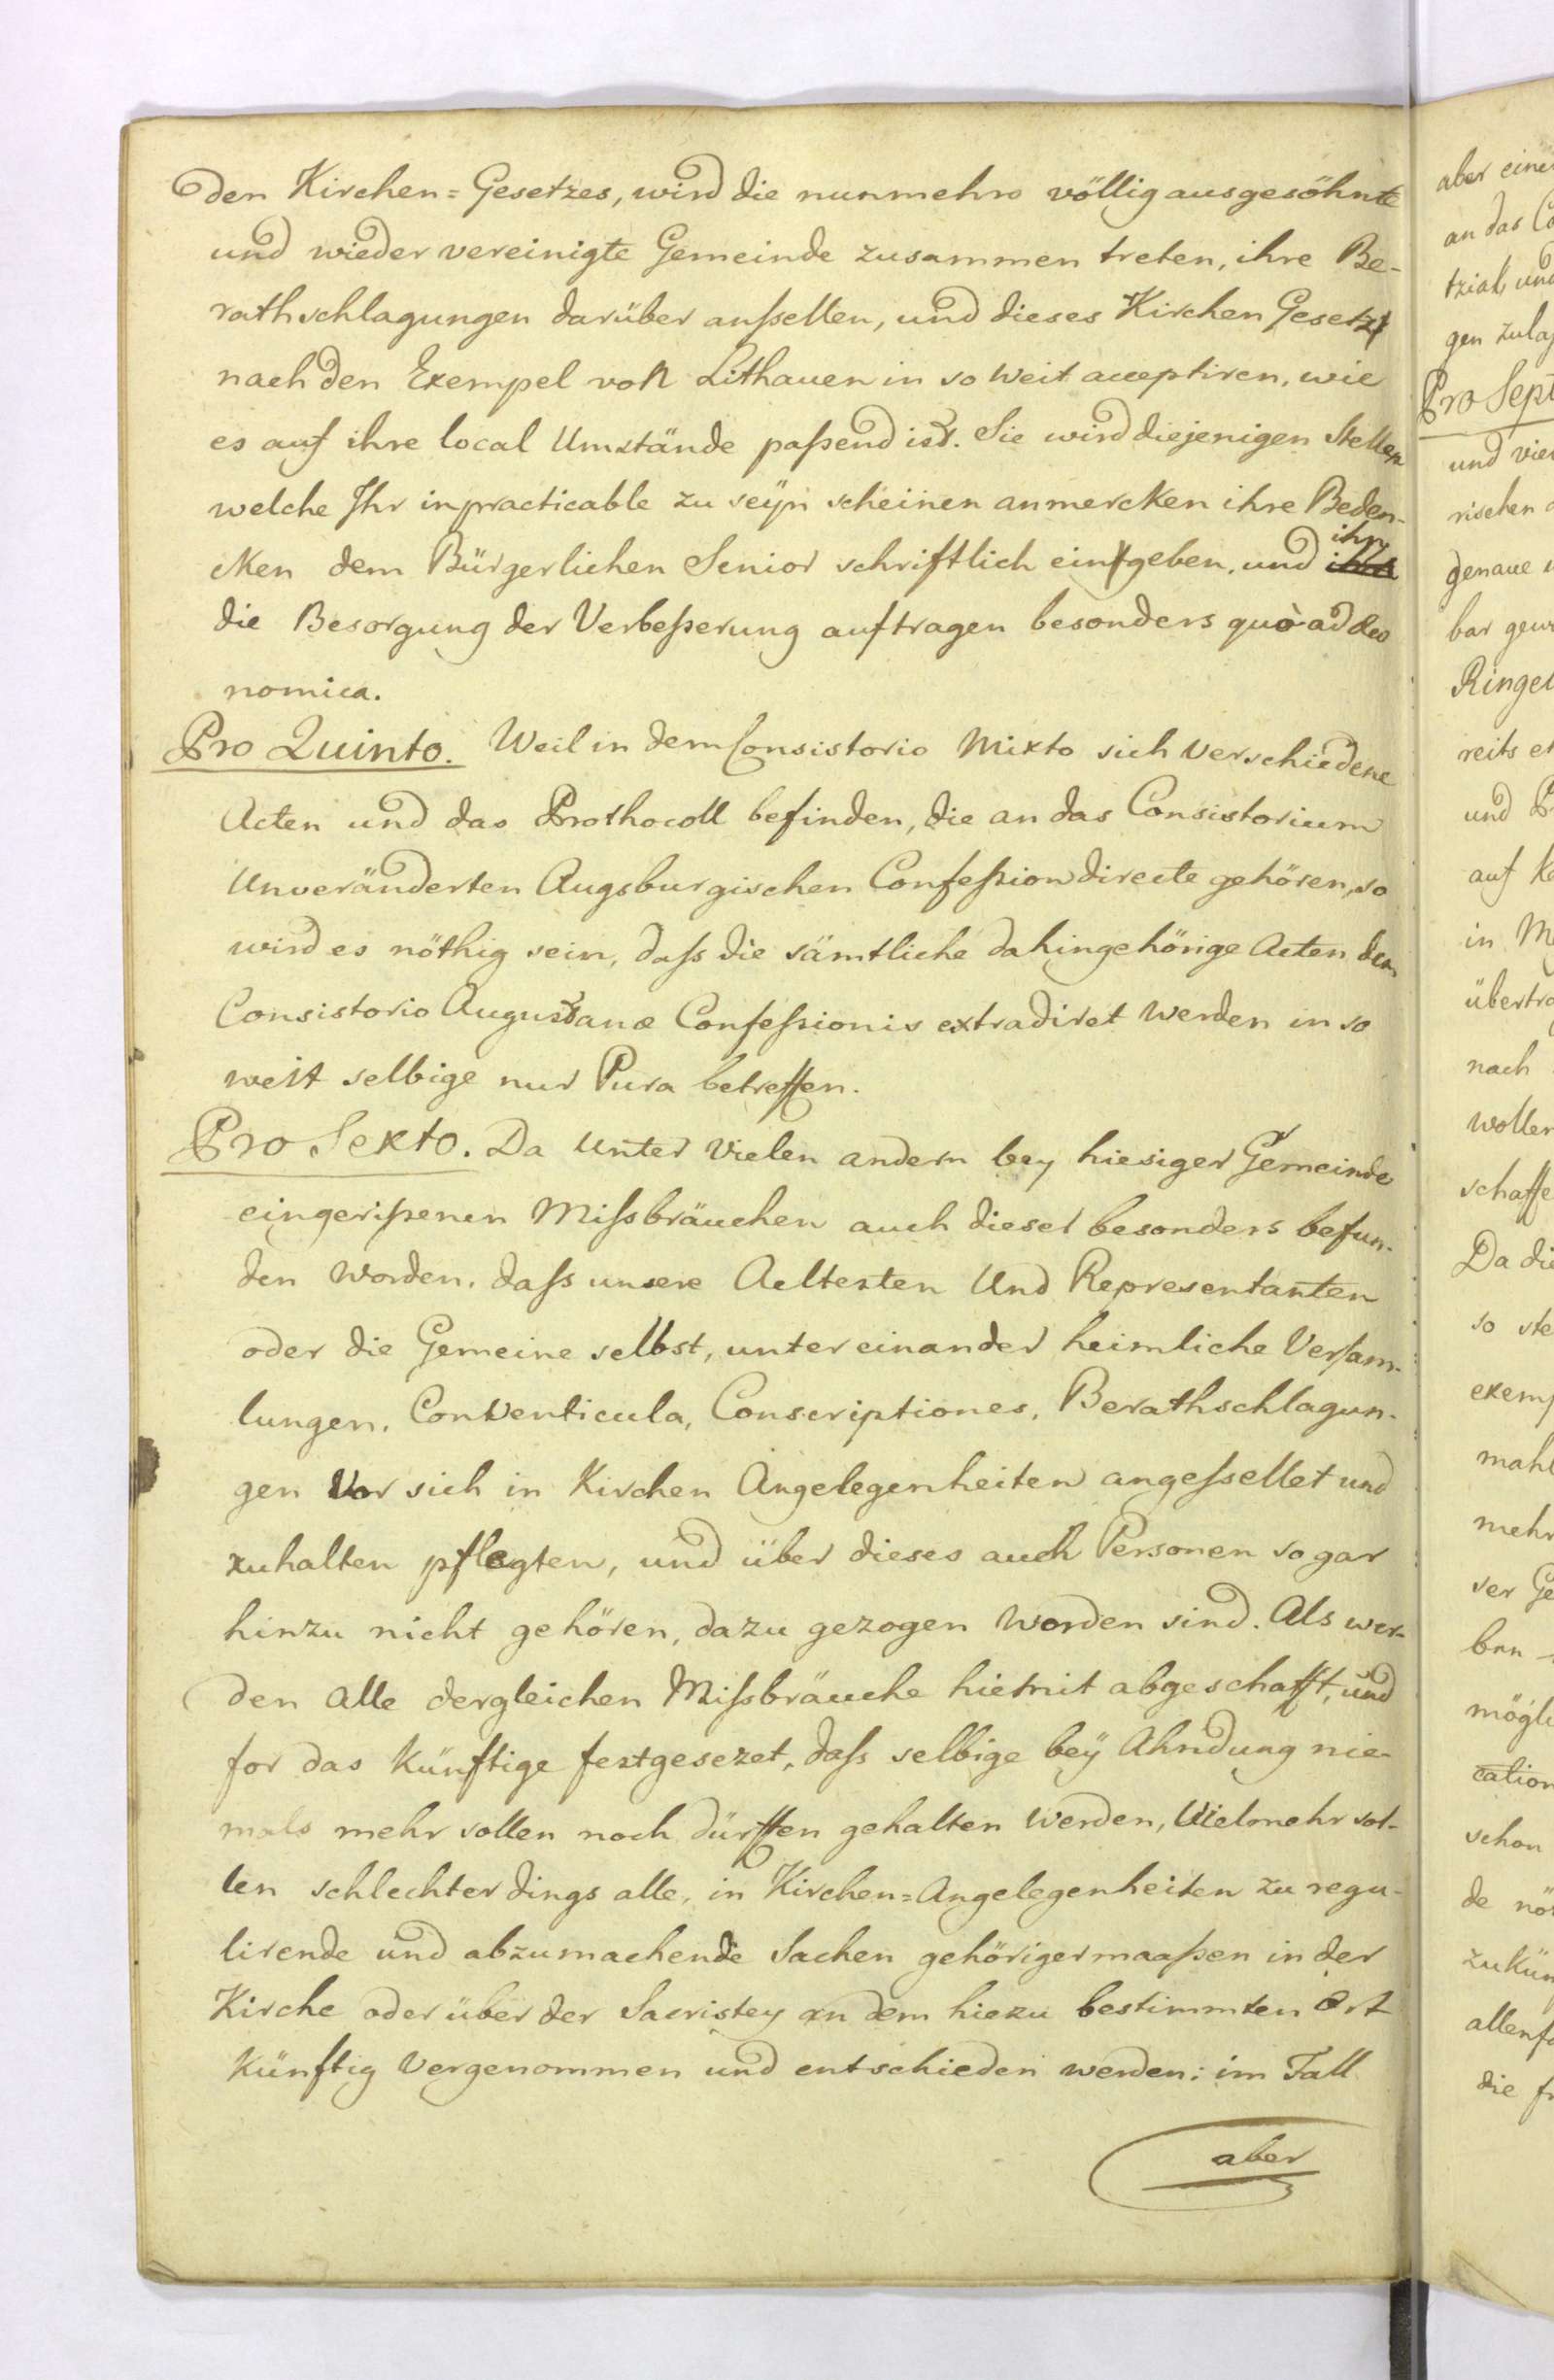 den Kirchen=Gesetzes, wird die nunmehro völlig ausgesöhnte
und wieder vereinigte Gemeinde zusammen treten, ihre Be-
rathschlagungen darüber anstellen, und dieses Kirchen Gesetz
nach den Exempel von Lithauen in so weit acceptiren, wie
es auf ihre local Umstände paßend ist. Sie wird diejenigen Stellen
welche Ihr inpracticable zu seÿn scheinen anmercken ihre Beden-
cken dem Bürgerlichen Senior schriftlich eingeben, und ihm
die Besorgung der Verbeßerung auftragen besonders quò ad oeo
nomica.
Pro Quinto. Weil in dem Consistorio Mixto sich verschiedene
Acten und das Prothocoll befinden, die an das Consistorium
Unveränderten Augsburgischen Confeßion directe gehören, so
wird es nöthig sein, daß die sämtliche dahingehörige Acten dem
Consistorio Augustanæ Confeßionis extradiret werden in so
weit selbige nur Pura betreffen.
Pro Sexto. Da unter vielen andern bey hiesiger Gemeinde
eingerißenen Mißbräuchen auch dieser besonders befun-
den worden, daß unsere Aeltesten Und Representanten
oder die Gemeine selbst, unter einander heimliche Versam-
lungen, Conventicula, Conscriptiones, Berathschlagun-
gen Vor sich in Kirchen Angelegenheiten angestellet und
zuhalten pflegten, und über dieses auch Personen so gar
hinzu nicht gehören, dazu gezogen worden sind. Als wer-
den alle dergleichen Mißbräuche hiermit abgeschafft, und
for das künftige festgesezet, daß selbige beÿ Ahndung nie-
mals mehr sollen noch dürffen gehalten werden, Vielmehr sol-
len schlechter dings alle, in Kirchen=Angelegenheiten zu regu-
lirende und abzumachende Sachen gehörigermaaßen in der
Kirche oder über der Sacristey an dem hiezu bestimmten Ort
künftig vorgenommen und entschieden werden; im Fall
aber
aber eine
an das Co
tzial, und
gen zulaß
Pro Sept
und viel
rischen
genaue
bar gew
Ringel
reits er
und P
auf K
in M
übertra
nach
wollen
schaffe
Da die
so ste
exemp
mahl
mehr
ser Ge
ben
mögli
cation
schon
de nö
zukün
allenfa
die f